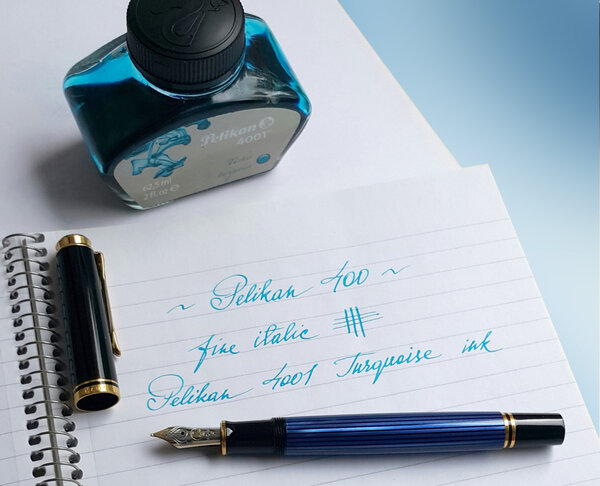 Pelikan
4001
62,5 ml
2 fl. oz ℮
~ Pelikan 400 ~
fine italic
Pelikan 4001 Turquoise ink